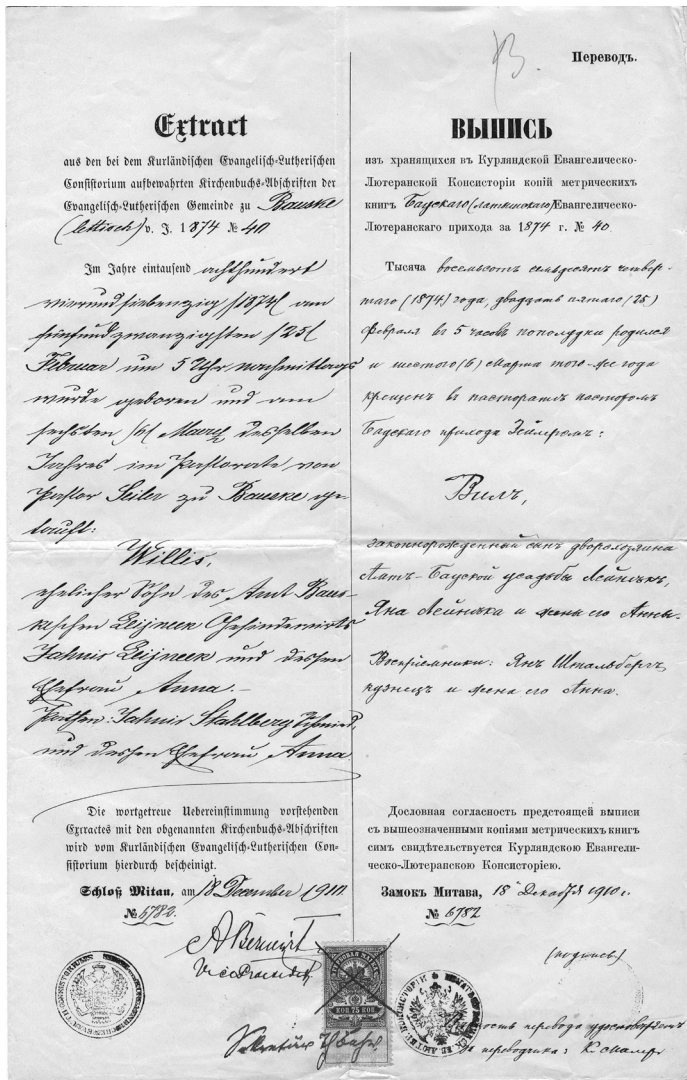 Extract
aus den bei dem Kurländischen Evangelisch-Lutherischen
Consistorium aufbewahrten Kirchenbuchs-Abschriften der
Evangelisch-Lutherischen Gemeinde zu Bauske
(lettisch) v. J. 1874 № 40
Im Jahre eintausend achthundert
vierundsiebenzig /1874/ am
fünfundzwanzigsten /25/
Februar um 5 Uhr nachmittags
wurde geboren und am
sechsten /6/ Maerz desselben
Jahres im Pastorate von
Pastor Seiler zu Bauske ge-
tauft:
Willis,
ehelicher Sohn des Amt Baus-
keschen Leijneek Gesindewirts
Jahnis Leijneek und dessen
Ehefrau, Anna.–
Pathen: Jahnis Stahlberg, Schmied,
und dessen Ehefrau Anna
Die wortgetreue Uebereinstimmung vorstehenden
Extractes mit den obgenannten Kirchenbuchs-Abschriften
wird vom Kurländischen Evangelisch-Lutherischen Con-
sistorium hierdurch bescheinigt.
Schloß Mitau, am 18 December 1910
№ 6782.
Vicepräsident
Sekretär
Переводъ.
ВЫПИСЬ
изъ хранящихся въ Курляндской Евангелическо-
Лютеранской Консисторіи копій метрическихъ
книгъ Баускаго (латышскаго) Евангелическо-
Лютеранскаго прихода за 1874 г. № 40
Тысяча восемьсотъ семьдесятъ четвер-
таго (1874) года, двадцать пятаго (25)
Февраля въ 5 часовъ пополудни родился
и шестого (6) Марта того-же года
крещенъ въ пасторатѣ пасторомъ
Баускаго прихода Зейлеромъ:
Вилъ,
законнорожденный сынъ дворохозяина
Амтъ-Бауской усадьбы Лейнѣкъ,
Яна Лейнѣка и жены его Анны.
Воспріемники: Янъ Штальбергъ,
кузнецъ и жена его Анна.
Дословная согласность предстоящей выписи
съ вышеозначенными копіями метрическихъ книгъ
симъ свидѣтельствуется Курляндскою Евангели-
ческо-Лютеранскою Консисторіею.
Замокъ Митава, 18 Декабря 1910 г.
№ 6782
(подпись)
КОП 75 КОП
перевода удостовѣряетъ
переводчика: